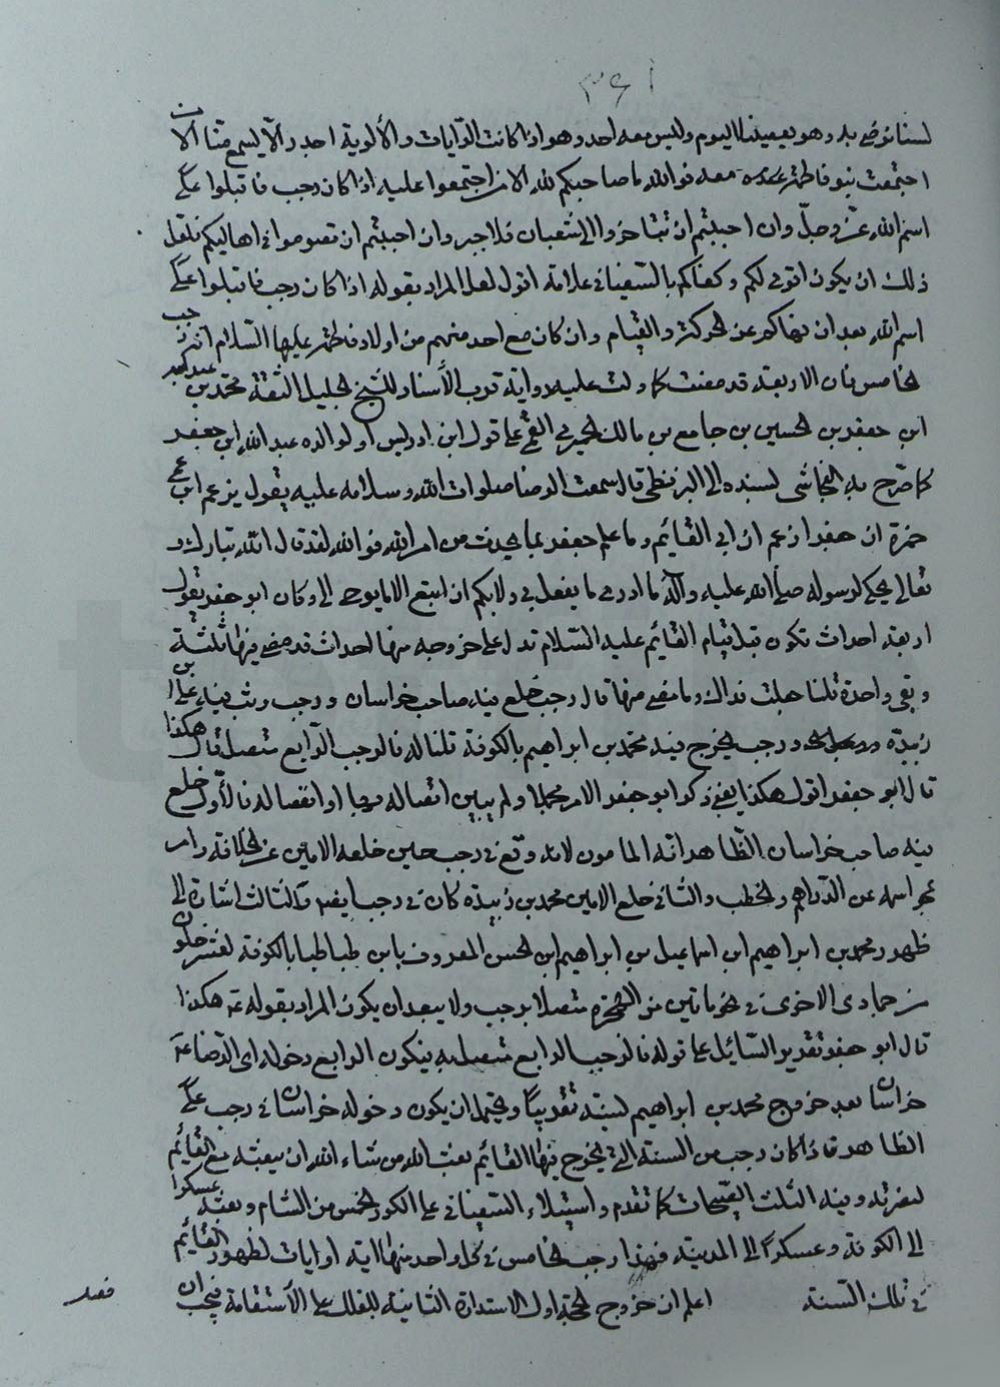 ٣٤١
لسنا نرضى به وهو يعصينا اليوم وليس معه احد وهو اذا كانت الرايات والألوية اجدر الا يسمع منا الا من
اجتمعت بنو فاطمة معه فوالله ما صاحبكم الا من اجتمعوا عليه اذا كان رجب فاقبلوا على
اسم الله عز وجل وان احببتم ان تتأخروا الى شعبان فلا ضير وان احببتم ان تصوموا في اهاليكم فلعل
ذلك ان يكون اقوى لكم وكفاكم بالسفياني علامة اقول لعل المراد بقوله اذا كان رجب فاقبلوا على
اسم الله بعد ان نهاكم عن الحركة والقيام وان كان مع احد منهم من اولاد فاطمة عليها السلام انه رجب
الخامس فان الاربعة قد مضت كما دلت عليه رواية قرب الأسناد للشيخ الجليل الثقة محمد بن عبد الله
ابن جعفر بن الحسين بن جامع بن مالك الحميري القمي على قول ابن ادريس او لوالده عبد الله ابن جعفر
كما صرح به النجاشي بسنده الى البزنطي قال سمعت الرضا صلوات الله وسلامه عليه يقول يزعم ابن ابي
حمزة ان جعفرا زعم ان ابي القائم وما علم جعفر بما يحدث من امر الله فوالله لقد قال الله تبارك و
تعالى يحكي لرسوله صلى الله عليه وآله ما ادري ما يفعل بي ولا بكم ان اتبع الا ما يوحى الي وكان ابو جعفر يقول
اربعة احداث تكون قبل قيام القائم عليه السلام تدل على خروجه منها احداث قد مضى منها ثلثة
وبقي واحدة قلنا جعلت فداك وما مضى منها قال رجب خلع فيه صاحب خراسان ورجب وثب فيه على ابن
زبيدة ورجب يخرج فيه محمد بن ابراهيم بالكوفة قلنا له فالرجب الرابع متصل قال هكذا
قال ابو جعفر اقول هكذا يعني ذكر ابو جعفر الامر مجملا ولم يبين اتصاله او انفصاله فالأول خلع
فيه صاحب خراسان الظاهر انه المامون لانه وقع في رجب حين خلعه الامين عن الخلافة وامر
بمحو اسمه عن الدراهم والخطب والثاني خلع الامين محمد بن زبيدة كان في رجب ايضا والثالث اشارة الى
ظهور محمد بن ابراهيم ابن اسماعيل بن ابراهيم ابن الحسن المعروف بابن طباطبا بالكوفة لعشر خلون
من جمادى الاخرى في نحو ماتين من الهجرة متصلا برجب ولا يبعد ان يكون المراد بقوله ع هكذا
قال ابو جعفر تقدير السائل على قوله فالرجب الرابع متصل به فيكون الرابع دخوله اي الرضا ع
خراسان بعد خروج محمد بن ابراهيم بسنة تقريبا ويحتمل ان يكون دخوله خراسان في رجب على
الظاهر فاذا كان رجب من السنة التي يخرج فيها القائم بعث الله من شاء الله ان يبعثه مع القائم
لنصرته وفيه الثلث الصيحات كما تقدم واستيلاء السفياني على الكور الخمس من الشام وبعثه عسكرا
الى الكوفة وعسكرا الى المدينة فهذا رجب الخامس في كل واحد منها اية او ايات لظهور القائم
في تلك السنة اعلم ان خروج الحجة اول الاستدارة الثانية للفلك على الأستقامة فيجب ان
فقد